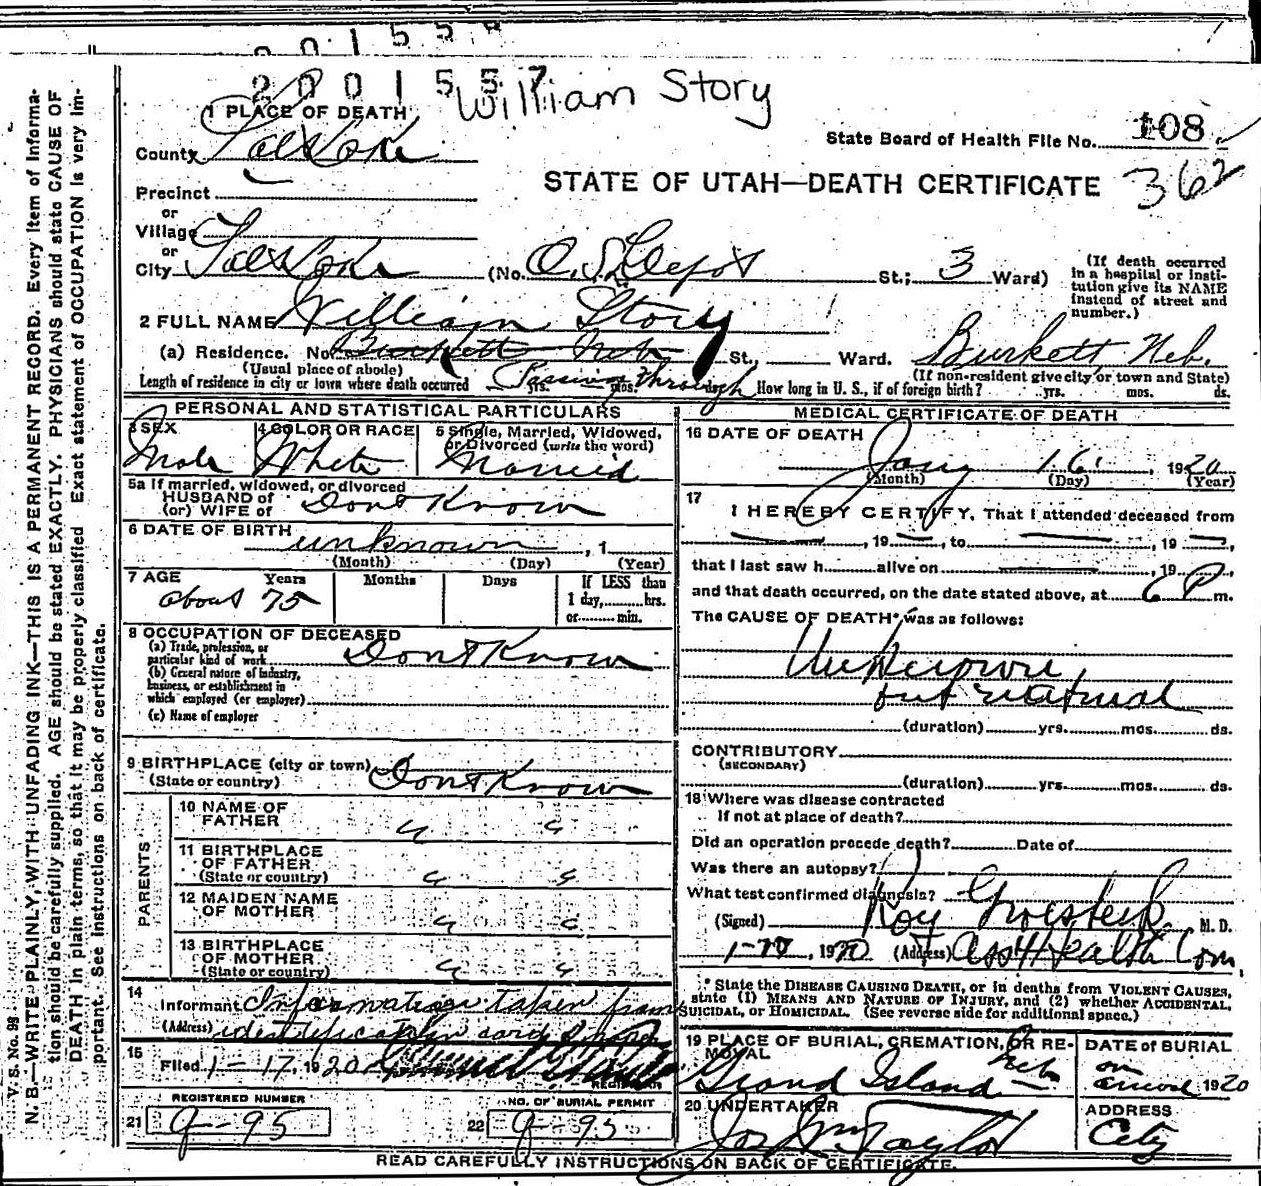 2001557
William Story
1 PLACE OF DEATH
County Salt Lake
State Board of Health File No. 108
362
STATE OF UTAH—DEATH CERTIFICATE
Precinct
or
Village
or
City Salt Lake (No. O.S.L. Depot St.; 3 Ward)
(If death occurred in a hospital or institution give its NAME instead of street and number.)
2 FULL NAME William Story
(a) Residence. No. Burkett Neb. St., Ward. Burkett Neb.
(Usual place of abode) (If non-resident give city or town and State)
Length of residence in city or town where death occurred Passing through yrs. mos. ds. How long in U. S., if of foreign birth? yrs. mos. ds.
PERSONAL AND STATISTICAL PARTICULARS
3 SEX
Male
4 COLOR OR RACE
White
5 Single, Married, Widowed, or Divorced (write the word)
Married
5a If married, widowed, or divorced
HUSBAND of
(or) WIFE of Dont Know
6 DATE OF BIRTH
unknown , 1
(Month) (Day) (Year)
7 AGE Years Months Days If LESS than
about 75 1 day,.......hrs.
or.........min.
8 OCCUPATION OF DECEASED
(a) Trade, profession, or
particular kind of work Dont Know
(b) General nature of industry,
business, or establishment in
which employed (or employer)
(c) Name of employer
9 BIRTHPLACE (city or town)
(State or country) Dont Know
PARENTS
10 NAME OF
FATHER " "
11 BIRTHPLACE
OF FATHER
(State or country) " "
12 MAIDEN NAME
OF MOTHER " "
13 BIRTHPLACE
OF MOTHER
(State or country) " "
14
Informant Information taken from
(Address) identification card
15
Filed 1-17, 1920
REGISTRAR
REGISTERED NUMBER
21 J-95
NO. OF BURIAL PERMIT
22 J-95
MEDICAL CERTIFICATE OF DEATH
16 DATE OF DEATH
Jany 16 , 1920
(Month) (Day) (Year)
17
I HEREBY CERTIFY, That I attended deceased from
, 19 , to , 19 ,
that I last saw h alive on , 19 ,
and that death occurred, on the date stated above, at 6 P m.
The CAUSE OF DEATH* was as follows:
Unknown
but natural
(duration) yrs. mos. ds.
CONTRIBUTORY
(SECONDARY)
(duration) yrs. mos. ds.
18 Where was disease contracted
If not at place of death?
Did an operation precede death? Date of
Was there an autopsy?
What test confirmed diagnosis?
(Signed) Roy Groesbeck M. D.
, 1920 (Address) Asst Health Com.
* State the DISEASE CAUSING DEATH, or in deaths from VIOLENT CAUSES,
state (1) MEANS AND NATURE OF INJURY, and (2) whether ACCIDENTAL,
SUICIDAL, or HOMICIDAL. (See reverse side for additional space.)
19 PLACE OF BURIAL, CREMATION, OR REMOVAL
Grand Island Neb
DATE OF BURIAL
on arrival 1920
20 UNDERTAKER
Jos Wm Taylor
ADDRESS
City
READ CAREFULLY INSTRUCTIONS ON BACK OF CERTIFICATE.
V. S. No. 99
N. B.—WRITE PLAINLY, WITH UNFADING INK—THIS IS A PERMANENT RECORD. Every item of information should be carefully supplied. AGE should be stated EXACTLY. PHYSICIANS should state CAUSE OF DEATH in plain terms, so that it may be properly classified. Exact statement of OCCUPATION is very important. See instructions on back of certificate.